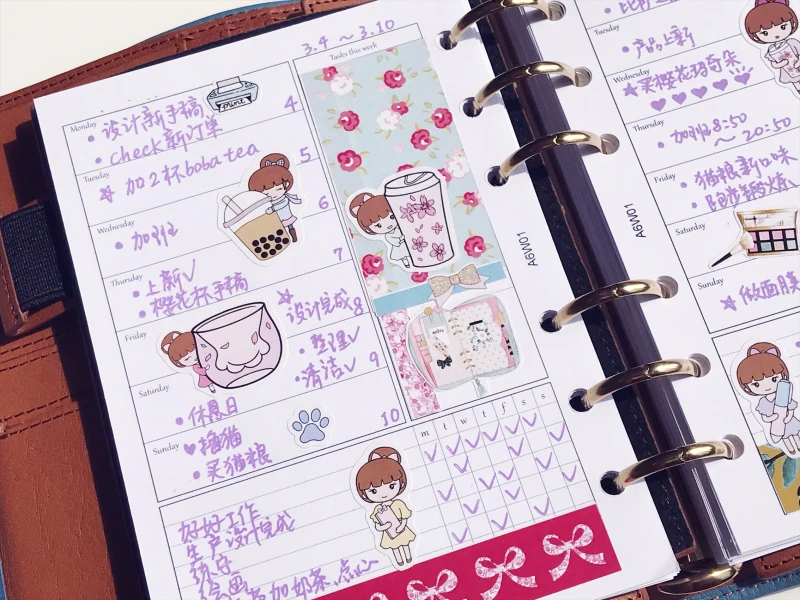 3.4 ～ 3.10
Tasks this week
Monday
• 设计新手稿
• check 新订单
print
4
Tuesday
加2杯boba tea
5
Wednesday
• 加班
6
Thursday
• 上新✓
• 樱花杯手稿
7
Friday
设计完成
8
• 整理✓
• 清洁✓
9
Saturday
• 休息日
10
Sunday
撸猫
• 买猫粮
m t w t f s s
好好工作
生产设计完成
绘画
加奶茶、点心
A6W01
Tuesday
• 产品上新
Wednesday
买樱花玛奇朵
Thursday
• 加班8:50
～ 20:50
Friday
• 猫粮新口味
Saturday
Sunday
做面膜
A6W01